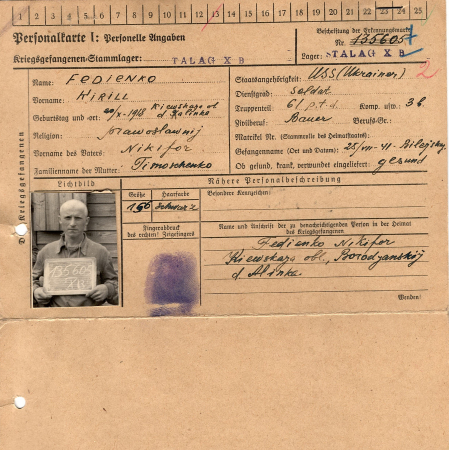 1 2 3 4 5 6 7 8 9 10 11 12 13 14 15 16 17 18 19 20 21 22 23 24 25
Personalkarte I: Personelle Angaben
Kriegsgefangenen-Stammlager: STALAG X B
Beschriftung der Erkennungsmarke
Nr. 135605
Lager: STALAG X B
Des Kriegsgefangenen
Name: FEDIENKO
Vorname: KIRILL
Geburtstag und -ort: /X-1918 Kiewskaja obl d Kalinka
Religion: prawoslawnij
Vorname des Vaters: Nikifor
Familienname der Mutter: Timoschenko
Staatsangehörigkeit: USS (Ukrainer) 2
Dienstgrad: Soldat
Truppenteil: 61. p.t.d. Komp. usw.: 3 b.
Zivilberuf: Bauer Berufs-Gr.:
Matrikel Nr. (Stammrolle des Heimatstaates):
Gefangennahme (Ort und Datum): 25/VII-41-
Ob gesund, krank, verwundet eingeliefert: gesund
Lichtbild
Nähere Personalbeschreibung
Größe Haarfarbe Besondere Kennzeichen:
schwarz
Fingerabdruck des rechten! Zeigefingers
Name und Anschrift der zu benachrichtigenden Person in der Heimat des Kriegsgefangenen
Fedienko Nikifor
Kiewskaja obl., Borodjanskij
d
Wenden!
135605
XB